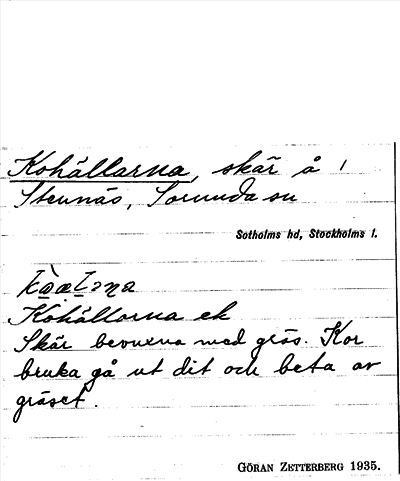 Kohällarna, skär å 1
Stennäs, Sorunda sn
Sotholms hd, Stockholms l.
Kohällarna ek
Skär bevuxna med gräs. Kor
bruka gå ut dit och beta av
gräset.
GÖRAN ZETTERBERG 1935.